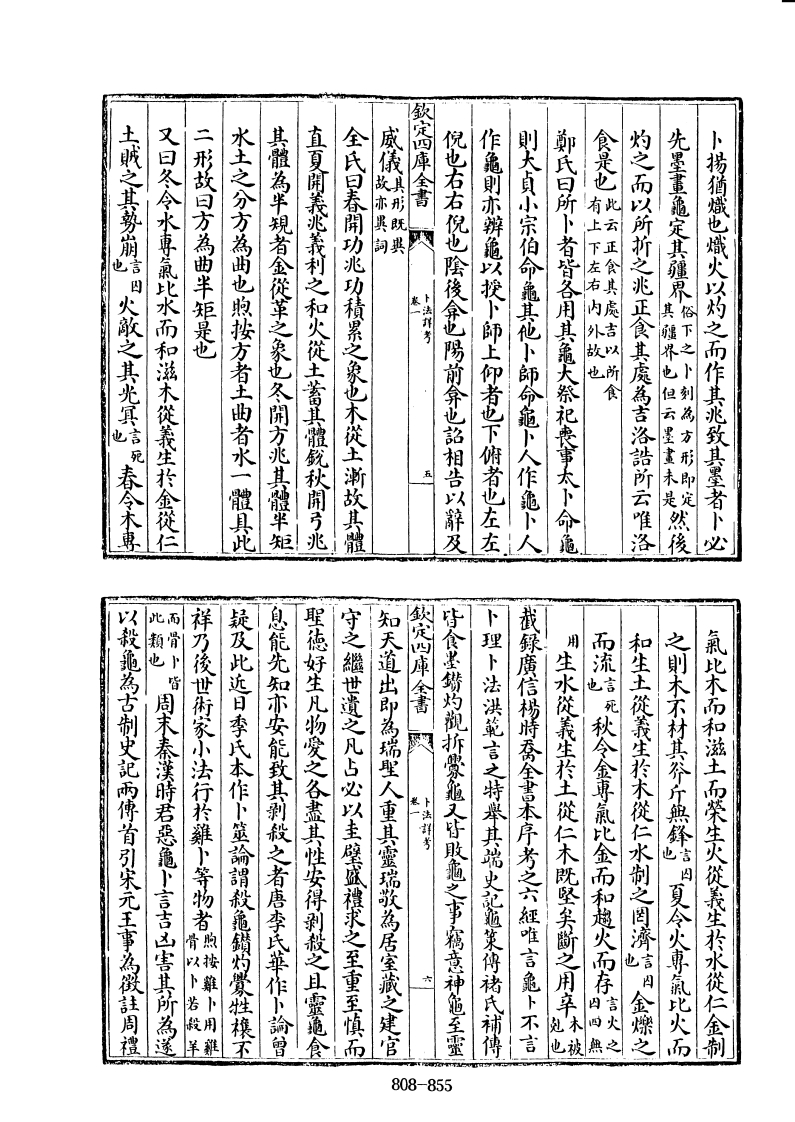 卜揚猶熾也熾火以灼之而作其兆致其墨者卜必
先墨畫龜定其疆界俗下之卜刻為方形即定其疆界也但云墨畫未是然後
灼之而以所折之兆正食其處為吉洛誥所云唯洛
食是也此云正食其處吉以所食有上下左右內外故也
鄭氏曰所卜者皆各用其龜大祭祀喪事太卜命龜
則大貞小宗伯命龜其他卜師命龜卜人作龜卜人
作龜則亦辨龜以授卜師上仰者也下俯者也左左
倪也右右倪也陰後弇也陽前弇也詔相告以辭及
欽定四庫全書
卜法詳考
卷一
五
威儀其形既異故亦異詞
全氏曰春開功兆功積累之象也木從土漸故其體
直夏開義兆義利之和火從土蓄其體銳秋開弓兆
其體為半規者金從革之象也冬開方兆其體半矩
水土之分方為曲也煦按方者土曲者水一體具此
二形故曰方為曲半矩是也
又曰冬令水專氣比水而和滋木從義生於金從仁
土賊之其勢崩言囚也火敵之其光冥言死也春令木專
氣比木而和滋土而榮生火從義生於水從仁金制
之則木不材其斧斤無鋒言囚也夏令火專氣比火而
和生土從義生於木從仁水制之罔濟言囚也金爍之
而流言死也秋令金專氣比金而和趨火而存言火之囚四無
用生水從義生於土從仁木既堅矣斷之用卒木被剋也
截錄廣信楊時喬全書本序考之六經唯言龜卜不言
卜理卜法洪範言之特舉其端史記龜策傳褚氏補傳
皆食墨鑽灼觀折釁龜又皆敗龜之事竊意神龜至靈
欽定四庫全書
卜法詳考
卷一
六
知天道出即為瑞聖人重其靈瑞敬為居室藏之建官
守之繼世遺之凡占必以圭璧盛禮求之至重至慎而
聖德好生凡物愛之各盡其性安得剥殺之且靈龜食
息能先知亦安能致其剥殺之者唐李氏華作卜論曾
疑及此近日季氏本作卜筮論謂殺龜鑽灼釁牲禳不
祥乃後世術家小法行於雞卜等物者煦按雞卜用雞骨以卜若殺羊
而骨卜皆此類也周末秦漢時君惡龜卜言吉凶害其所為遂
以殺龜為古制史記兩傳首引宋元王事為徵註周禮
808-855